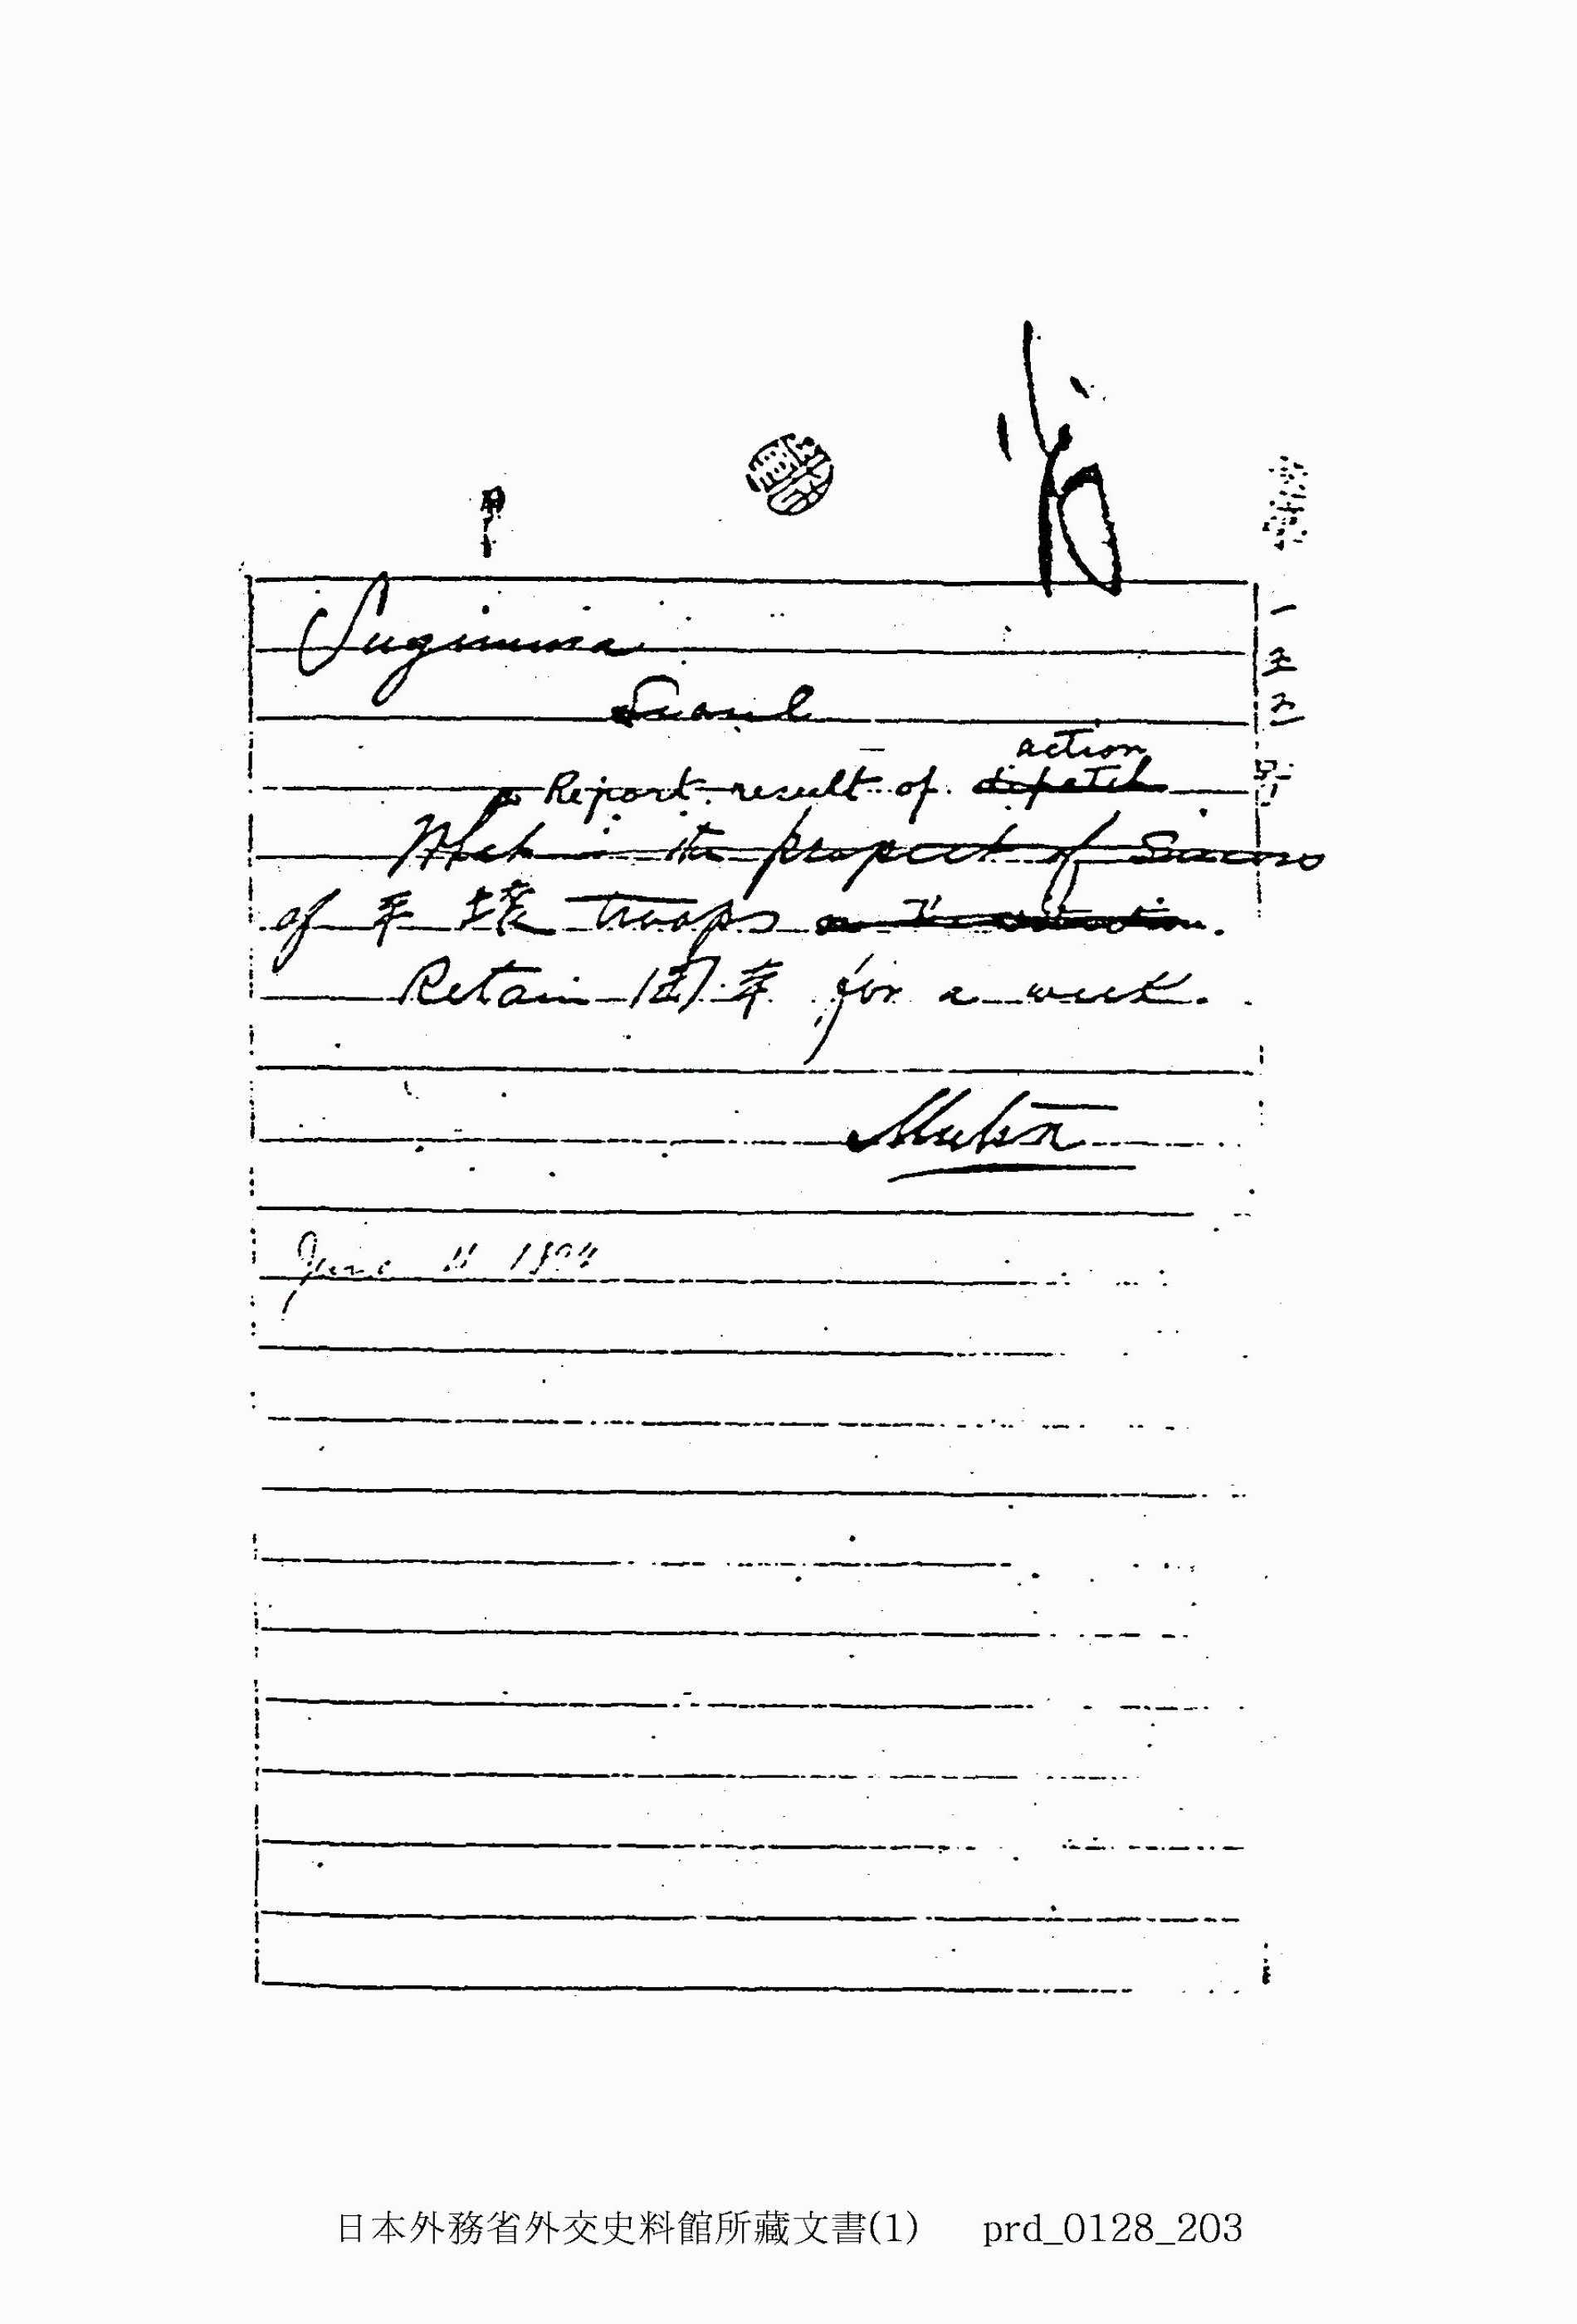 Sugimura
Seoul
action
Report result of dispatch
What is the prospect of success
of 平壌 troops
Retain for a week.
Mutsu
June 11 1894
日本外務省外交史料館所藏文書(1) prd_0128_203